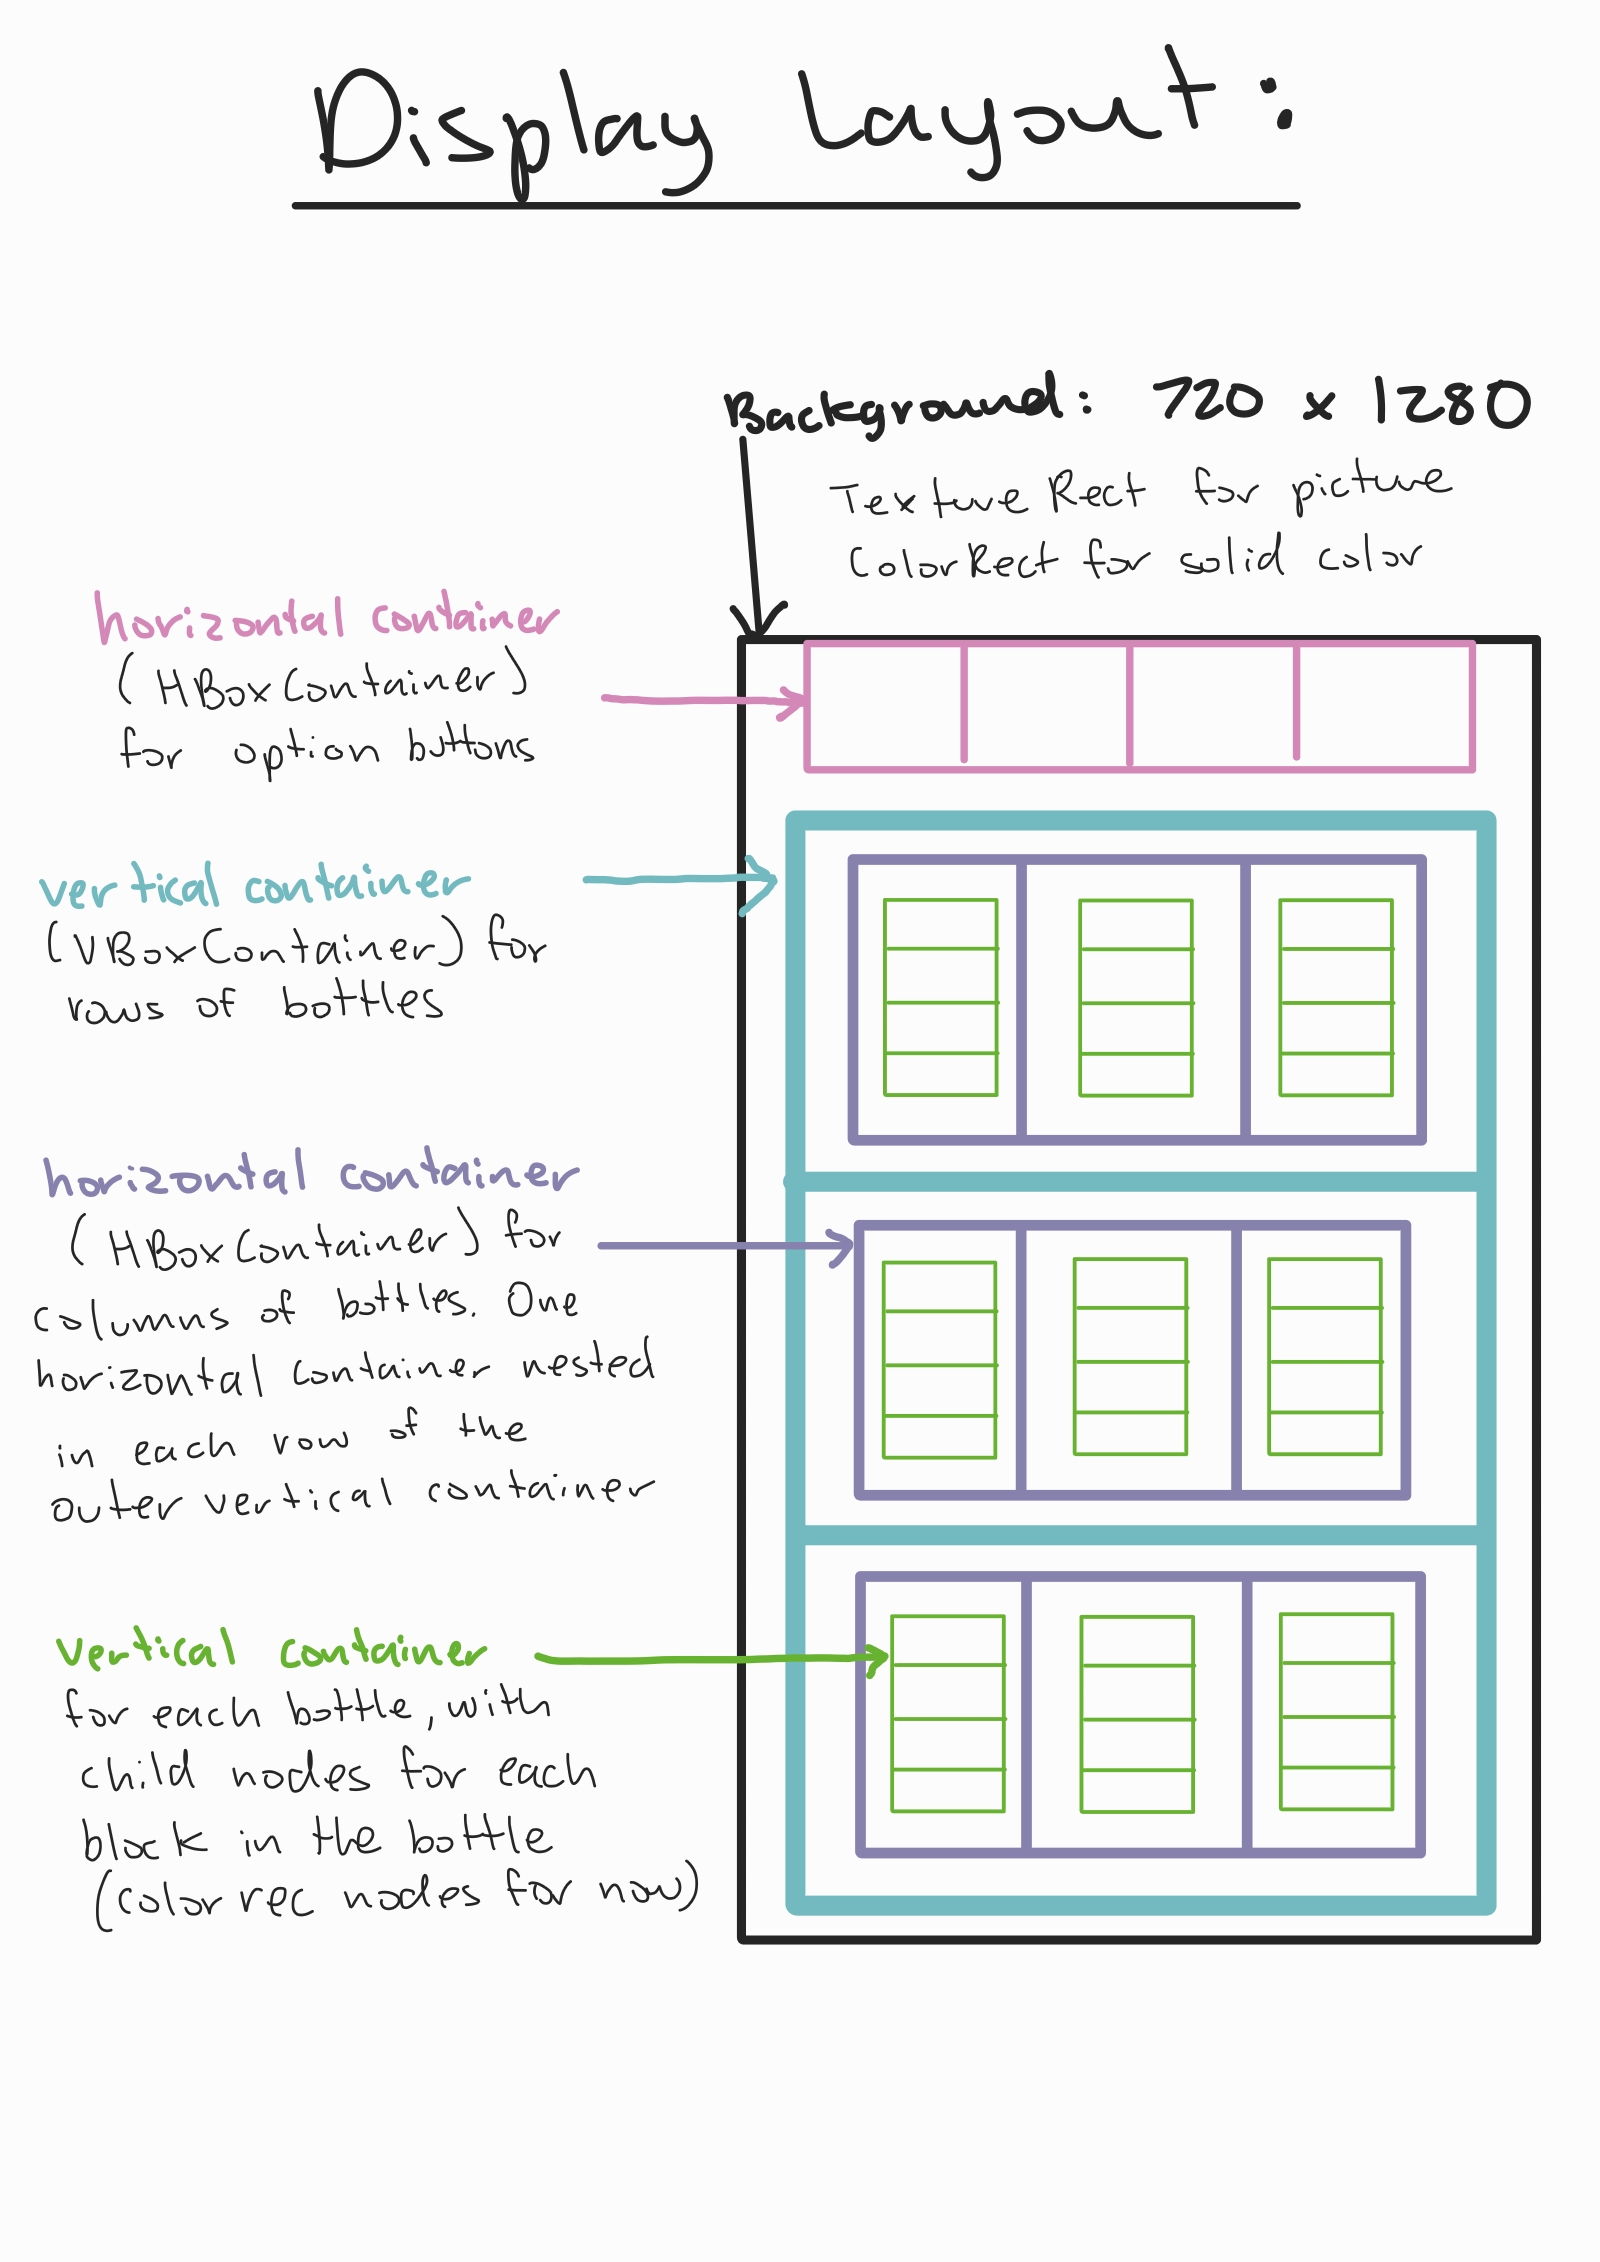 Display Layout:
Background: 720 x 1280
Texture Rect for picture
ColorRect for solid color
horizontal container
(HBoxContainer)
for option buttons
vertical container
(VBoxContainer) for
rows of bottles
horizontal container
(HBoxContainer) for
columns of bottles. One
horizontal container nested
in each row of the
outer vertical container
vertical container
for each bottle, with
child nodes for each
block in the bottle
(color rec nodes for now)